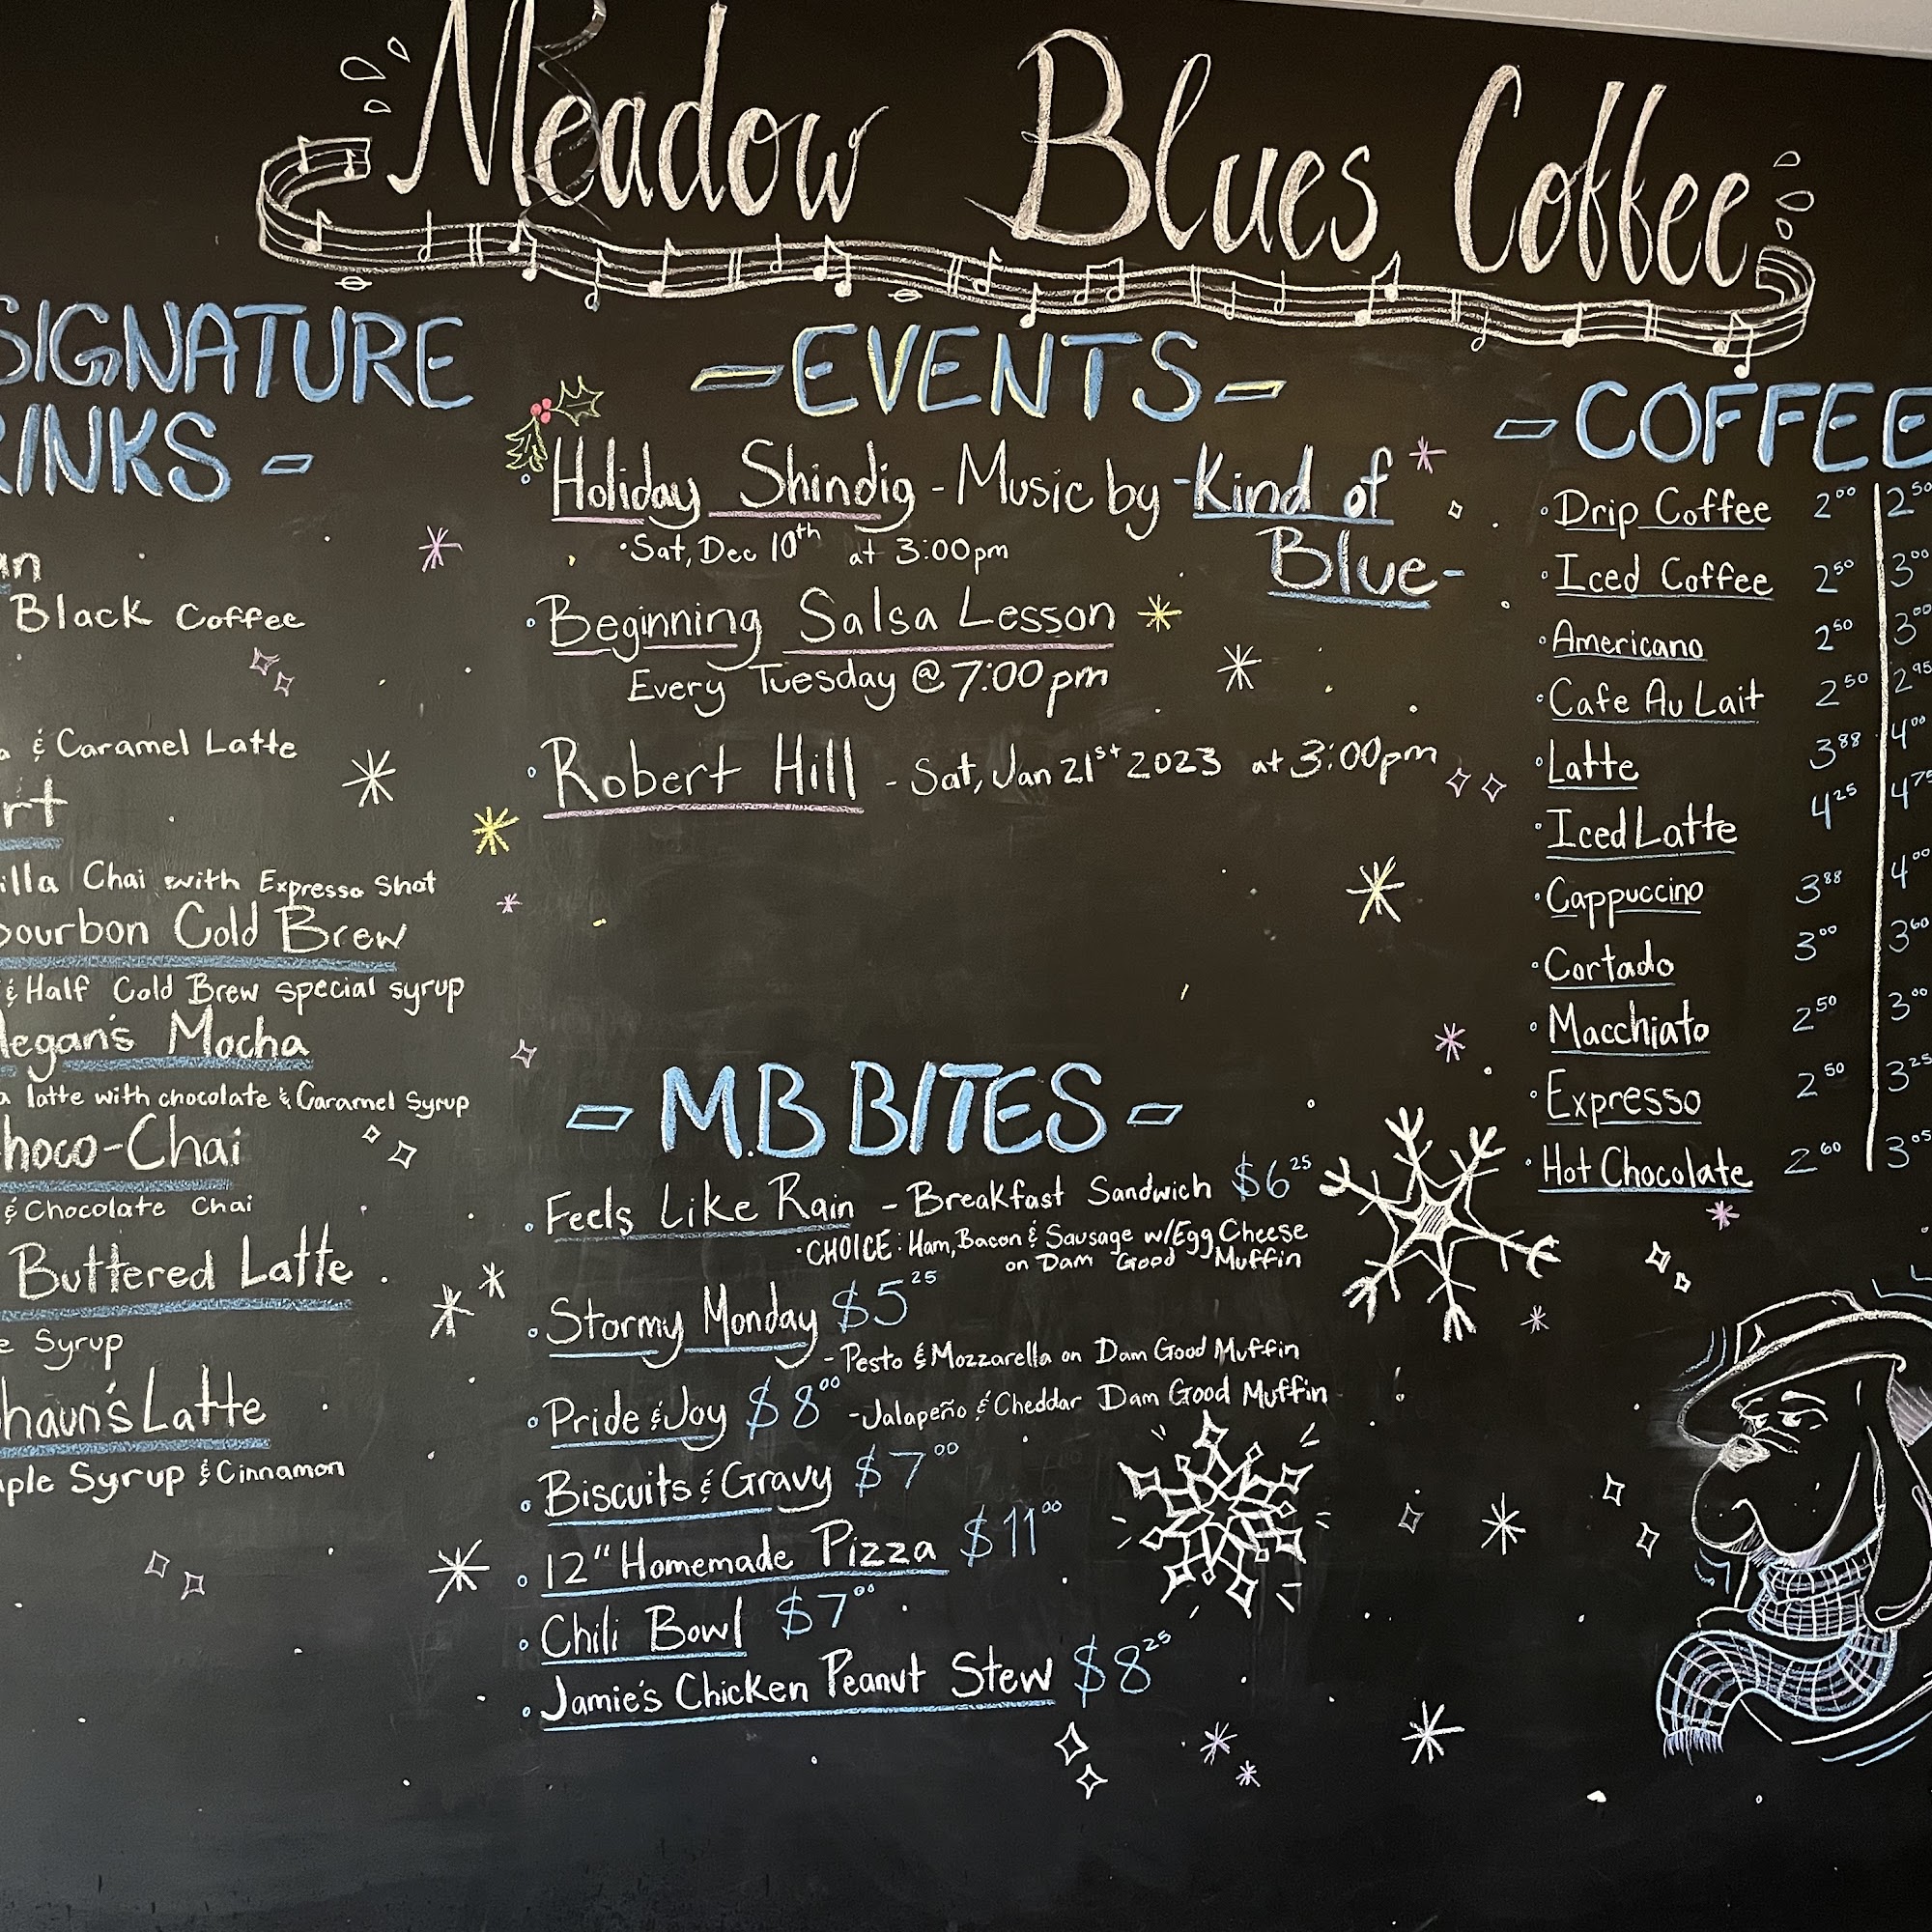 Meadow Blues Coffee
SIGNATURE
RINKS -
an
Black Coffee
& Caramel Latte
rt
illa Chai with Expresso Shot
bourbon Cold Brew
& Half Cold Brew special syrup
Megan's Mocha
a latte with chocolate & Caramel Syrup
hoco-Chai
& Chocolate Chai
Buttered Latte
e Syrup
haun's Latte
ple Syrup & Cinnamon
- EVENTS -
Holiday Shindig - Music by - Kind of
Blue -
• Sat, Dec 10th at 3:00pm
Beginning Salsa Lesson
Every Tuesday @ 7:00pm
Robert Hill - Sat, Jan 21st 2023 at 3:00pm
- M.B BITES -
• Feels Like Rain - Breakfast Sandwich $6 25
• CHOICE: Ham, Bacon & Sausage w/Egg Cheese
on Dam Good Muffin
• Stormy Monday $5 25
- Pesto & Mozzarella on Dam Good Muffin
• Pride & Joy $8 00 - Jalapeño & Cheddar Dam Good Muffin
• Biscuits & Gravy $7 00
• 12" Homemade Pizza $11 00
• Chili Bowl $7 00
• Jamie's Chicken Peanut Stew $8 25
- COFFEE
• Drip Coffee 2 00 2 50
• Iced Coffee 2 50 3 00
• Americano 2 50 3 00
• Cafe Au Lait 2 50 2 95
• Latte 3 88 4 00
• Iced Latte 4 25 4 75
• Cappuccino 3 88 4 00
• Cortado 3 00 3 60
• Macchiato 2 50 3 00
• Expresso 2 50 3 25
• Hot Chocolate 2 60 3 05